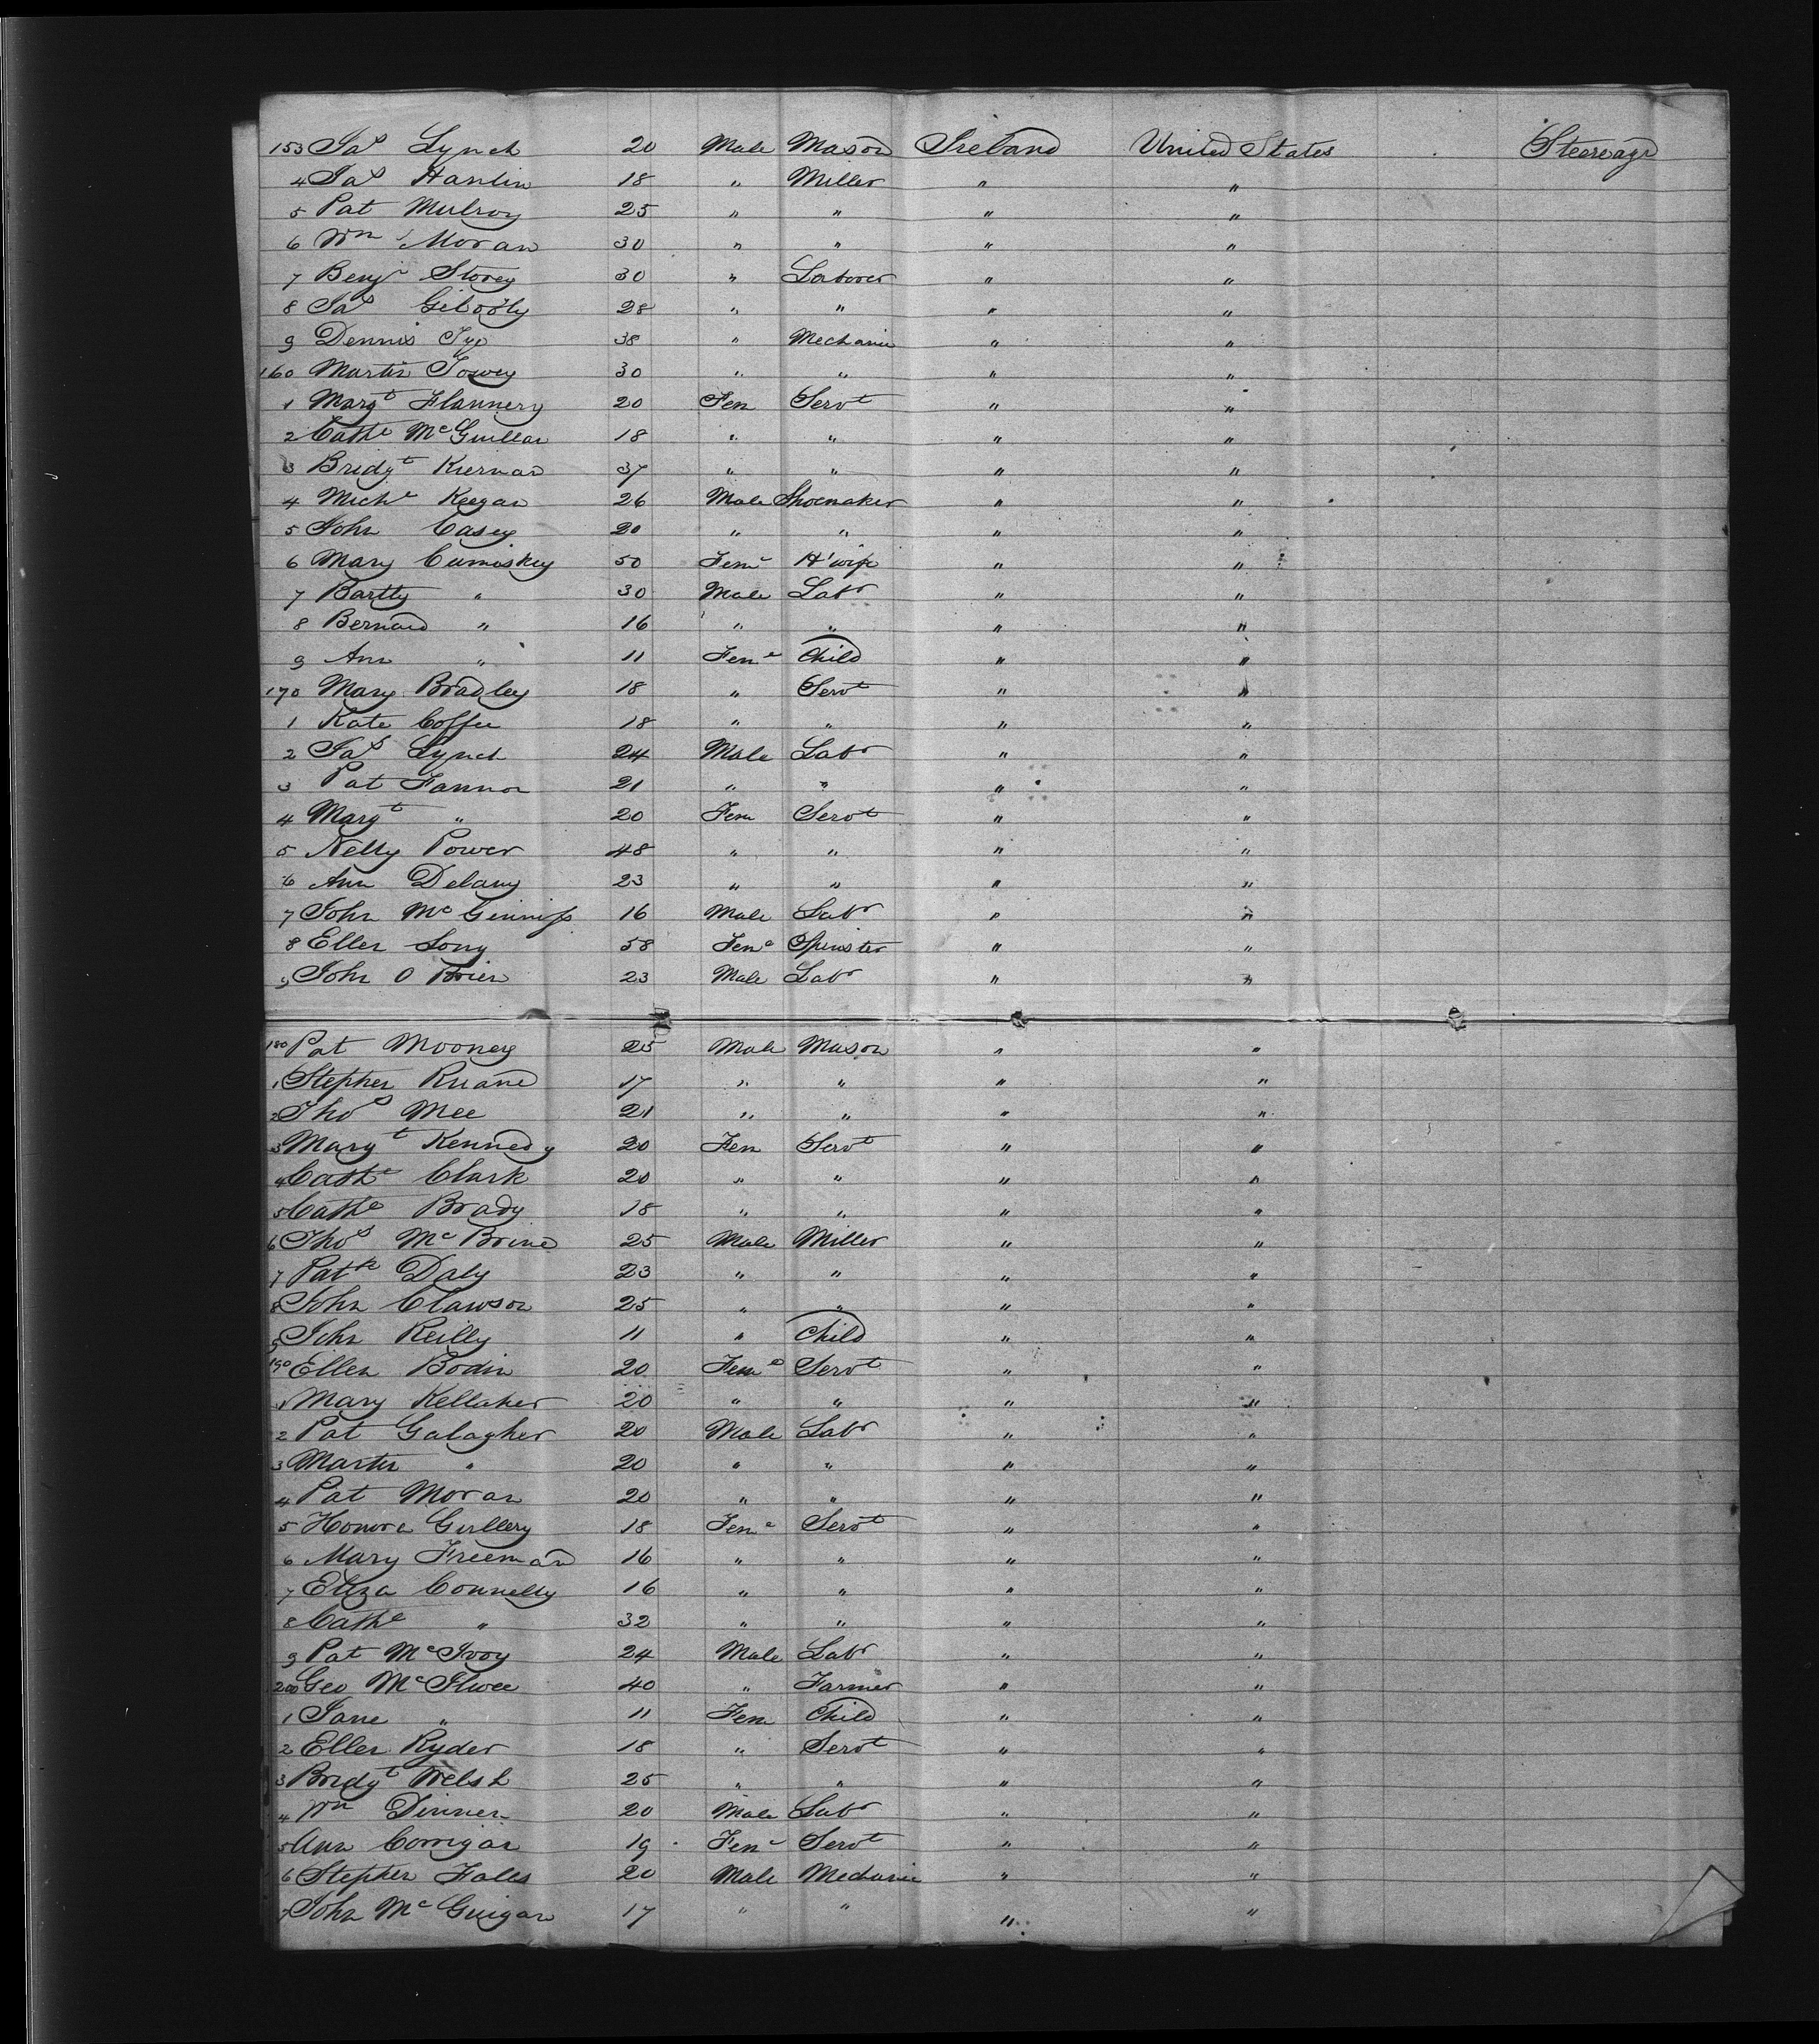 153 Jas Lynch 20 Male Mason Ireland United States Steerage
4 Jas Hanlin 18 " Miller " "
5 Pat Mulroy 25 " " " "
6 Wm Moran 30 " " " "
7 Benjn Storey 30 " Laborer " "
8 Jas Gilooly 28 " " " "
9 Dennis Tye 38 " Mechanic " "
160 Martin Towey 30 " " " "
1 Margt Flannery 20 Fem Servt " "
2 Cathe McGuillan 18 " " " "
3 Bridgt Kiernan 37 " " " "
4 Michl Keegan 26 Male Shoemaker " "
5 John Casey 20 " " " "
6 Mary Cumiskey 50 Feme H'wife " "
7 Bartly " 30 Male Labr " "
8 Bernard " 16 " " " "
9 Ann " 11 Feme Child " "
170 Mary Bradley 18 " Servt " "
1 Kate Coffee 18 " " " "
2 Jas Lynch 24 Male Labr " "
3 Pat Fannon 21 " " " "
4 Margt " 20 Fem Servt " "
5 Nelly Power 48 " " " "
6 Ann Delany 23 " " " "
7 John McGenniss 16 Male Labr " "
8 Ellen Long 58 Feme Spinster " "
9 John O Brien 23 Male Labr " "
180 Pat Mooney 25 Male Mason " "
1 Stephen Ruane 17 " " " "
2 Thos Mee 21 " " " "
3 Margt Kennedy 20 Fem Servt " "
4 Cathe Clark 20 " " " "
5 Cathe Brady 18 " " " "
6 Thos McBrine 25 Male Miller " "
7 Patk Daly 23 " " " "
8 John Clawson 25 " " " "
9 John Reilly 11 " Child " "
190 Ellen Bodin 20 Feme Servt " "
1 Mary Kellaher 20 " " " "
2 Pat Galagher 20 Male Labr " "
3 Martin " 20 " " " "
4 Pat Moran 20 " " " "
5 Honora Gullery 18 Feme Servt " "
6 Mary Freeman 16 " " " "
7 Eliza Connelly 16 " " " "
8 Cathe " 32 " " " "
9 Pat McIvoy 24 Male Labr " "
200 Geo McIlwee 40 " Farmer " "
1 Jane " 11 Fem Child " "
2 Ellen Ryder 18 " Servt " "
3 Bridgt Welsh 25 " " " "
4 Wm Dinnen 20 Male Labr " "
5 Ann Corrigan 19 Feme Servt " "
6 Stephen Falls 20 Male Mechanic " "
7 John McGuigan 17 " " " "